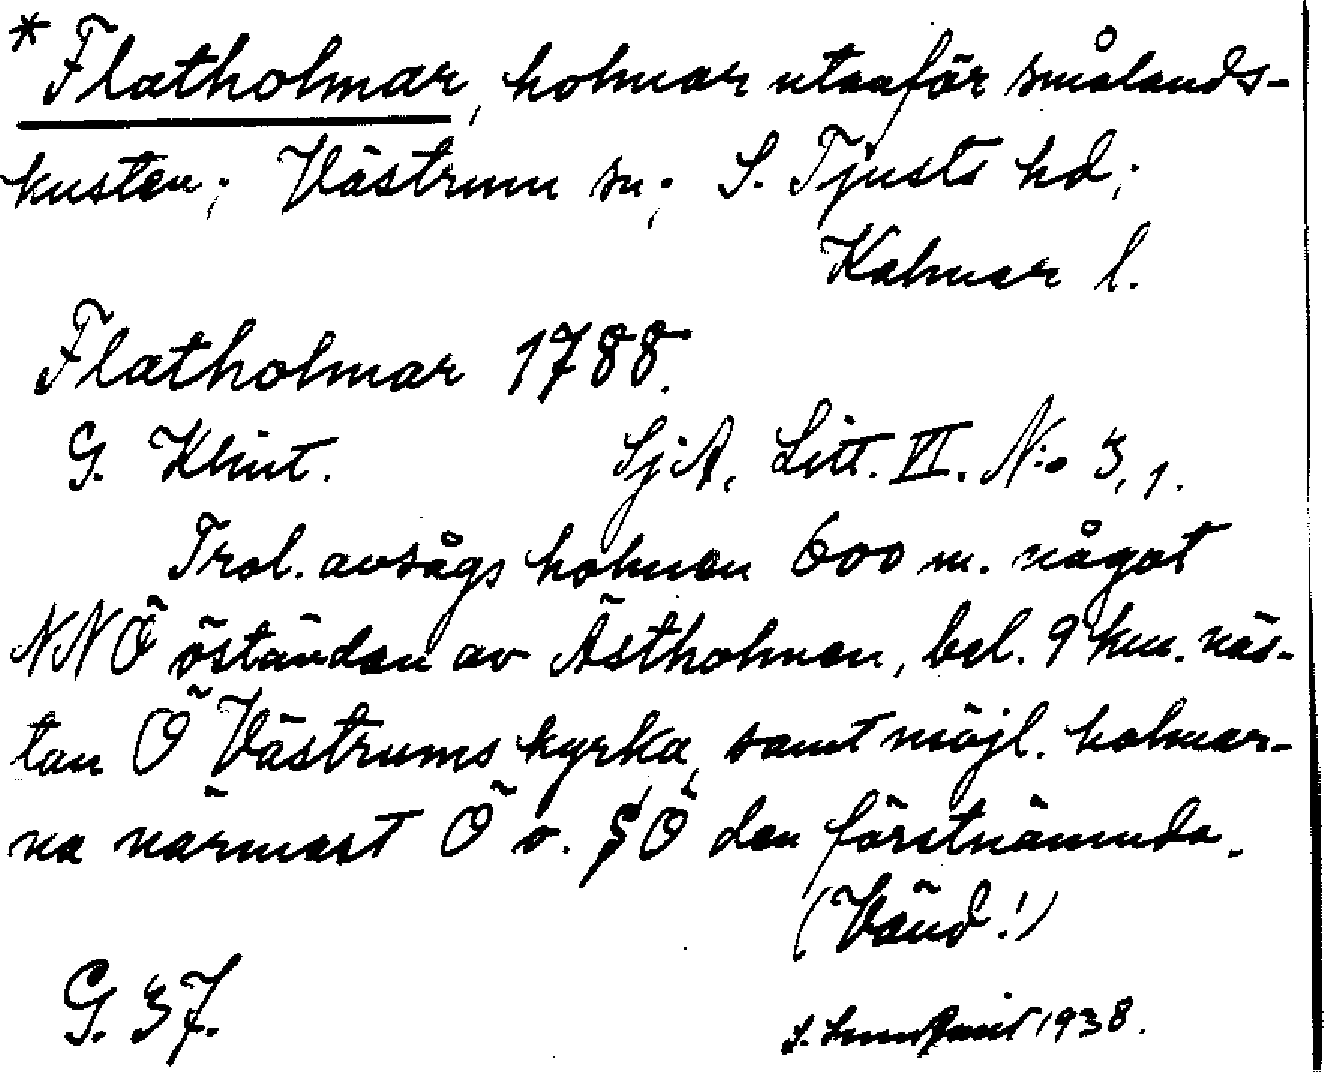 * Flatholmar, holmar utanför smålands-
kusten; Västrum sn; S. Tjusts hd;
Kalmar l.
Flatholmar 1788.
G. Klint. SjA, Litt. VI. N:o 3, 1.
Trol. avsågs holmen 600 m. något
NNÖ öständen av Ästholmen, bel. 9 km. näs-
tan Ö Västrums kyrka, samt möjl. holmar-
na närmast Ö o. SÖ den förstnämnda.
(Vänd!)
G. 37.
S. Lundqvist 1938.